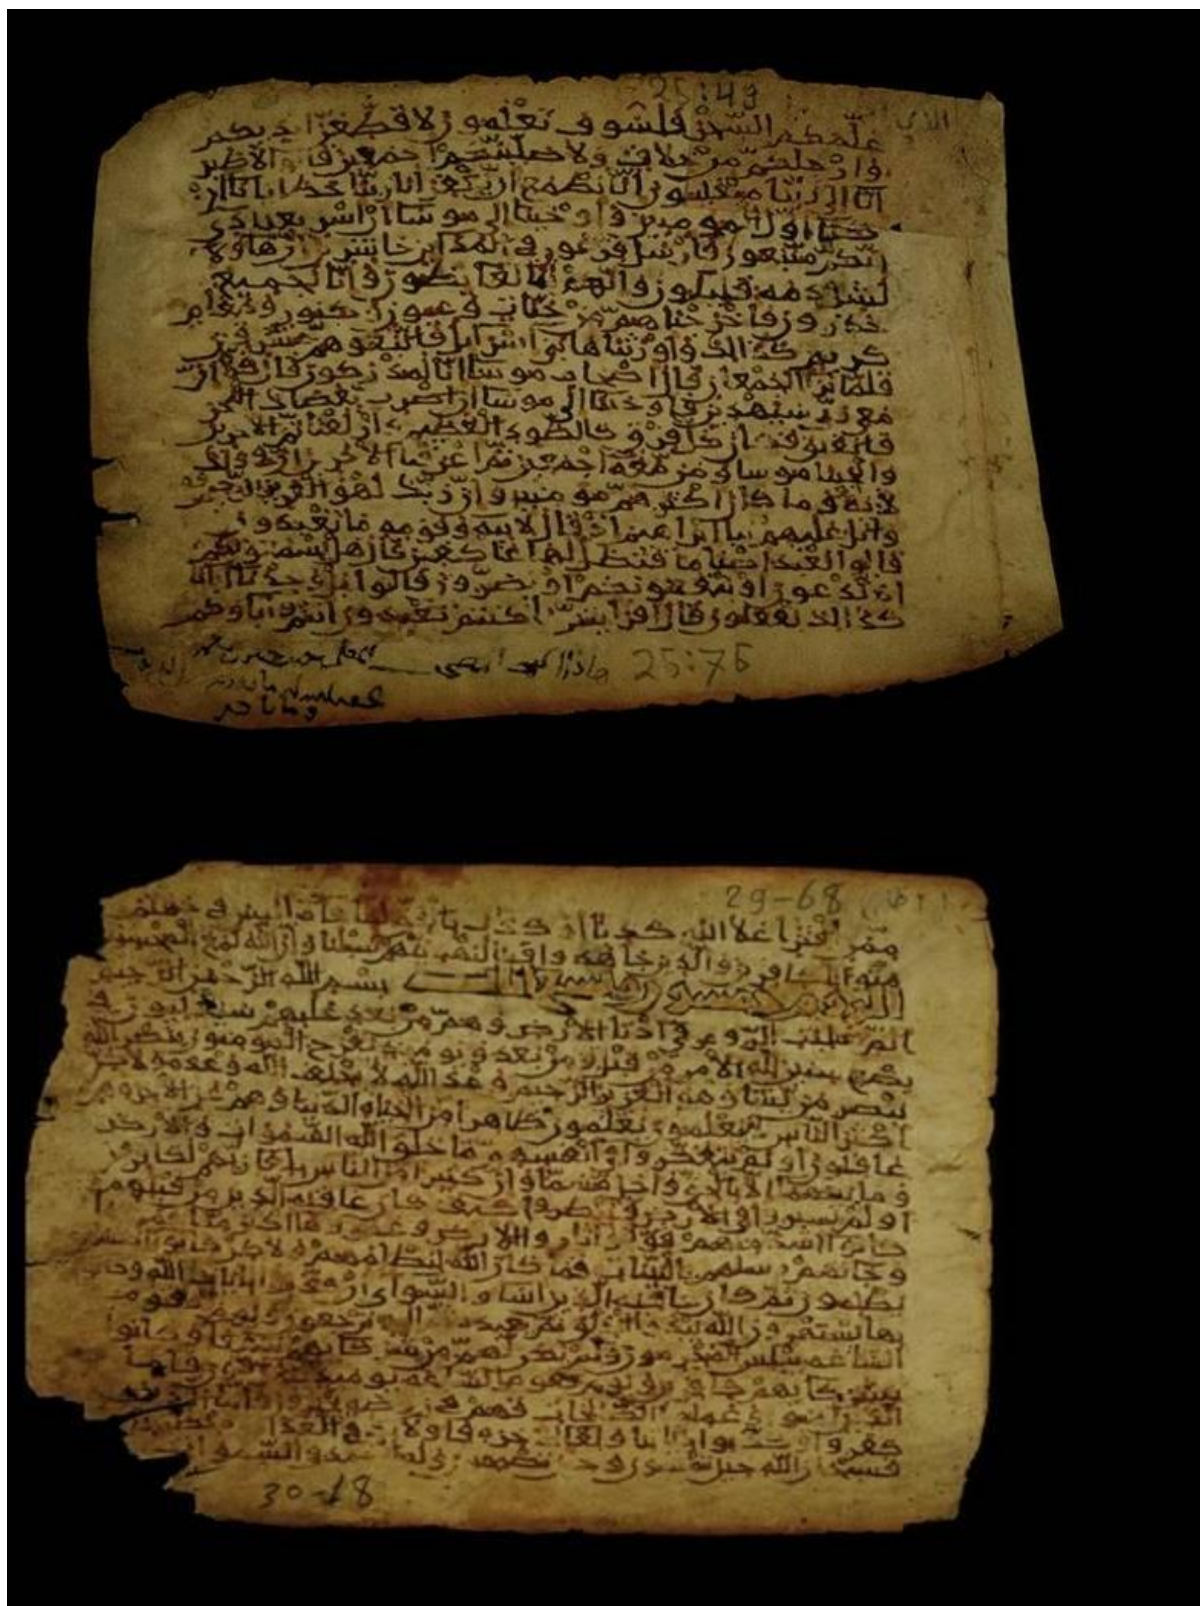 25:49
الذي
علمكم السحر فلسوف تعلمون لاقطعن ايديكم
وارجلكم من خلاف ولاصلبنكم اجمعين قالو لا ضير
انا الى ربنا منقلبون انا نطمع ان يغفر لنا ربنا خطايانا ان
كنا اول المومنين واوحينا الى موسا ان اسر بعبادي
انكم متبعون فارسل فرعون في المداين حاشرين ان هاولا
لشرذمة قليلون وانهم لنا لغايظون وانا لجميع
حذرون فاخرجناهم من جنات وعيون وكنوز ومقام
كريم كذالك واورثناها بني اسرايل فاتبعوهم مشرقين
فلما ترا الجمعان قال اصحاب موسا انا لمدركون قال كلا ان
معي ربي سيهدين فاوحينا الى موسا ان اضرب بعصاك البحر
فانفلق فكان كل فرق كالطود العظيم وازلفنا ثم الاخرين
وانجينا موسا ومن معه اجمعين ثم اغرقنا الاخرين ان في ذالك
لاية وما كان اكثرهم مومنين وان ربك لهو العزيز الرحيم
واتل عليهم نبا ابراهيم اذ قال لابيه وقومه ما تعبدون
قالوا نعبد اصناما فنظل لها عاكفين قال هل يسمعونكم
اذ تدعون او ينفعونكم او يضرون قالوا بل وجدنا ابانا
كذالك يفعلون قال افرايتم ما كنتم تعبدون انتم واباوكم
25:76
29-68
ممن افترا علا الله كذبا او كذب بالحق لما جاه اليس في جهنم
مثوا للكافرين والذين جاهدوا فينا لنهدينهم سبلنا وان الله لمع المحسنين
بسم الله الرحمن الرحيم
الم غلبت الروم في ادنا الارض وهم من بعد غلبهم سيغلبون في
بضع سنين لله الامر من قبل ومن بعد ويوميذ يفرح المومنون بنصر الله
ينصر من يشا وهو العزيز الرحيم وعد الله لا يخلف الله وعده ولاكن
اكثر الناس لا يعلمون يعلمون ظاهرا من الحياة الدنيا وهم عن الاخرة هم
غافلون اولم يتفكروا في انفسهم ما خلق الله السموات والارض
وما بينهما الا بالحق واجل مسما وان كثيرا من الناس بلقا ربهم لكافرون
اولم يسيروا في الارض فينظروا كيف كان عاقبة الذين من قبلهم
كانوا اشد منهم قوة واثاروا الارض وعمروها اكثر مما
وجاتهم رسلهم بالبينات فما كان الله ليظلمهم ولاكن كانوا انفسهم
يظلمون ثم كان عاقبة الذين اساوا السواى ان كذبوا بايات الله وكانوا
بها يستهزون الله يبدا الخلق ثم يعيده ثم اليه ترجعون ويوم تقوم
الساعة يبلس المجرمون ولم يكن لهم من شركايهم شفعا وكانوا
بشركايهم كافرين ويوم تقوم الساعة يوميذ يتفرقون فاما
الذين امنوا وعملوا الصالحات فهم في روضة يحبرون واما الذين
كفروا وكذبوا باياتنا ولقا الاخرة فاولايك في العذاب محضرون
فسبحان الله حين تمسون وحين تصبحون وله الحمد في السموات
30-18